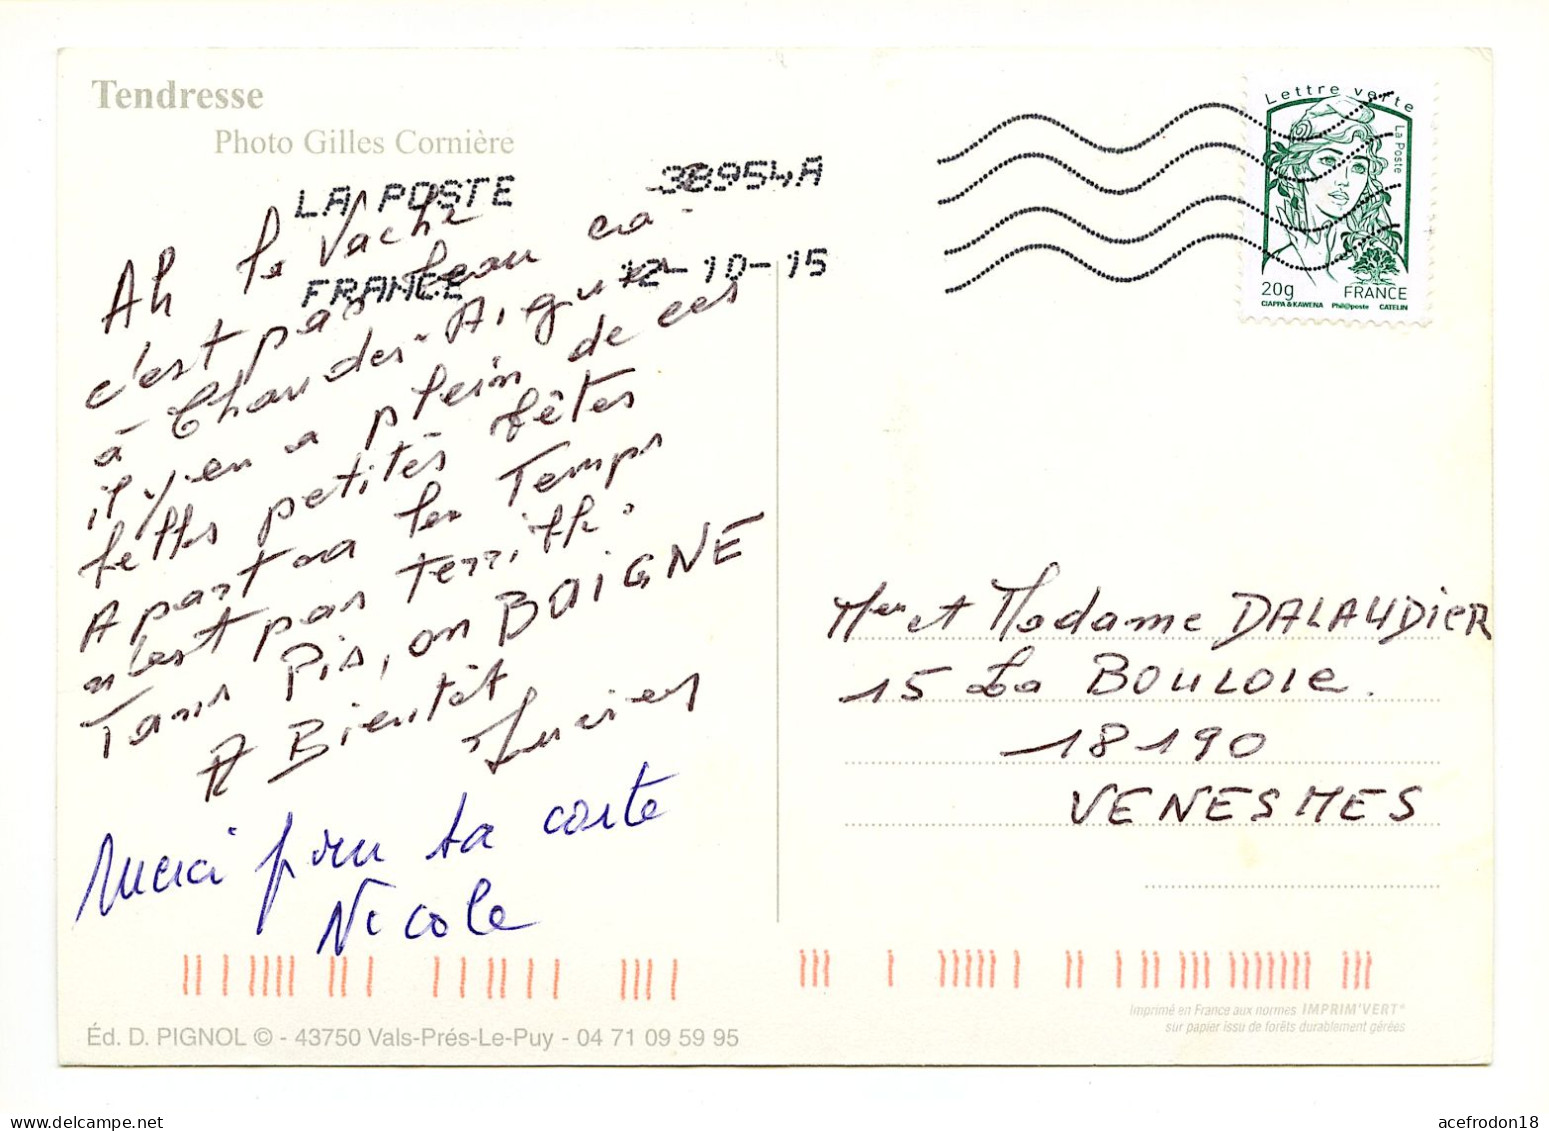 Tendresse
Photo Gilles Cornière
LA POSTE 38954A
FRANCE 12-10-15
Lettre verte
La Poste
20g FRANCE
CIAPPA & KAWENA Phil@poste CATELIN
Ah la Vache
c'est pas beau ca
à Chaudes-Aigues
il y en a plein de ces
petites fêtes
Apart ça le Temps
n'est pas terrible
Tans Pis, on BAIGNE
A Bientôt
Merci pour ta carte
Nicole
Mer et Madame DALAUDIER
15 La BOULOIE.
18190
VENESMES
Imprimé en France aux normes IMPRIM'VERT®
sur papier issu de forêts durablement gérées
Éd. D. PIGNOL © - 43750 Vals-Prés-Le-Puy - 04 71 09 59 95
acefrodon18